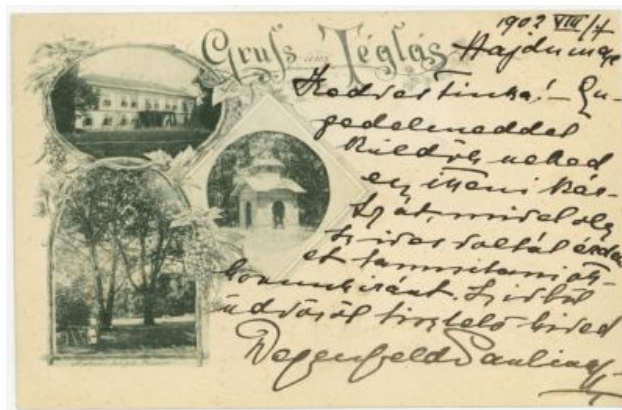 Gruss aus Téglás
1902 VIII/7
Hajdumegye
Kedves Tinka! – En-
gedelmeddel
küldök neked
egy itteni kár-
tyát, mivel oly
szives voltál érdek-
et tanusitani
iránt. Szivből
üdvözöl tisztelő hived
Degenfeld Pauline